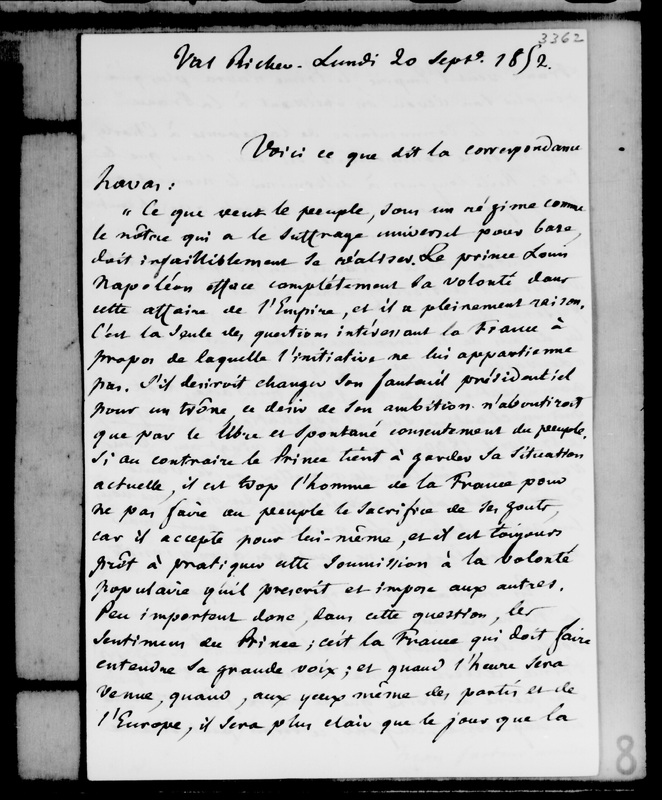 3362
Val Richer - Lundi 20 Sept^e. 1852.
Voici ce que dit la correspondance
havas :
" Ce que veut le peuple, sous un régime comme
le nôtre qui a le suffrage universel pour base,
doit infailliblement se réaliser. Le prince Louis
Napoléon efface complétement sa volonté dans
cette affaire de l'Empire, et il a pleinement raison.
C'est la seule des questions intéressant la France à
propos de laquelle l'initiative ne lui appartienne
pas. S'il desiroit changer son fauteuil présidentiel
pour un trône, ce desir de son ambition n'aboutiroit
que par le libre et spontané consentement du peuple.
Si au contraire le Prince tient à garder sa situation
actuelle, il est trop l'homme de la France pour
ne pas faire au peuple le sacrifice de ses gouts,
car il accepte pour lui-même, et il est toujours
prêt à pratiquer cette soumission à la volonté
populaire qu'il prescrit et impose aux autres.
Peu importent donc, dans cette question, les
sentimens du Prince ; c'est la France qui doit faire
entendre sa grande voix ; et quand l'heure sera
venue, quand, aux yeux même des partis et de
l'Europe, il sera plus clair que le jour que la
8